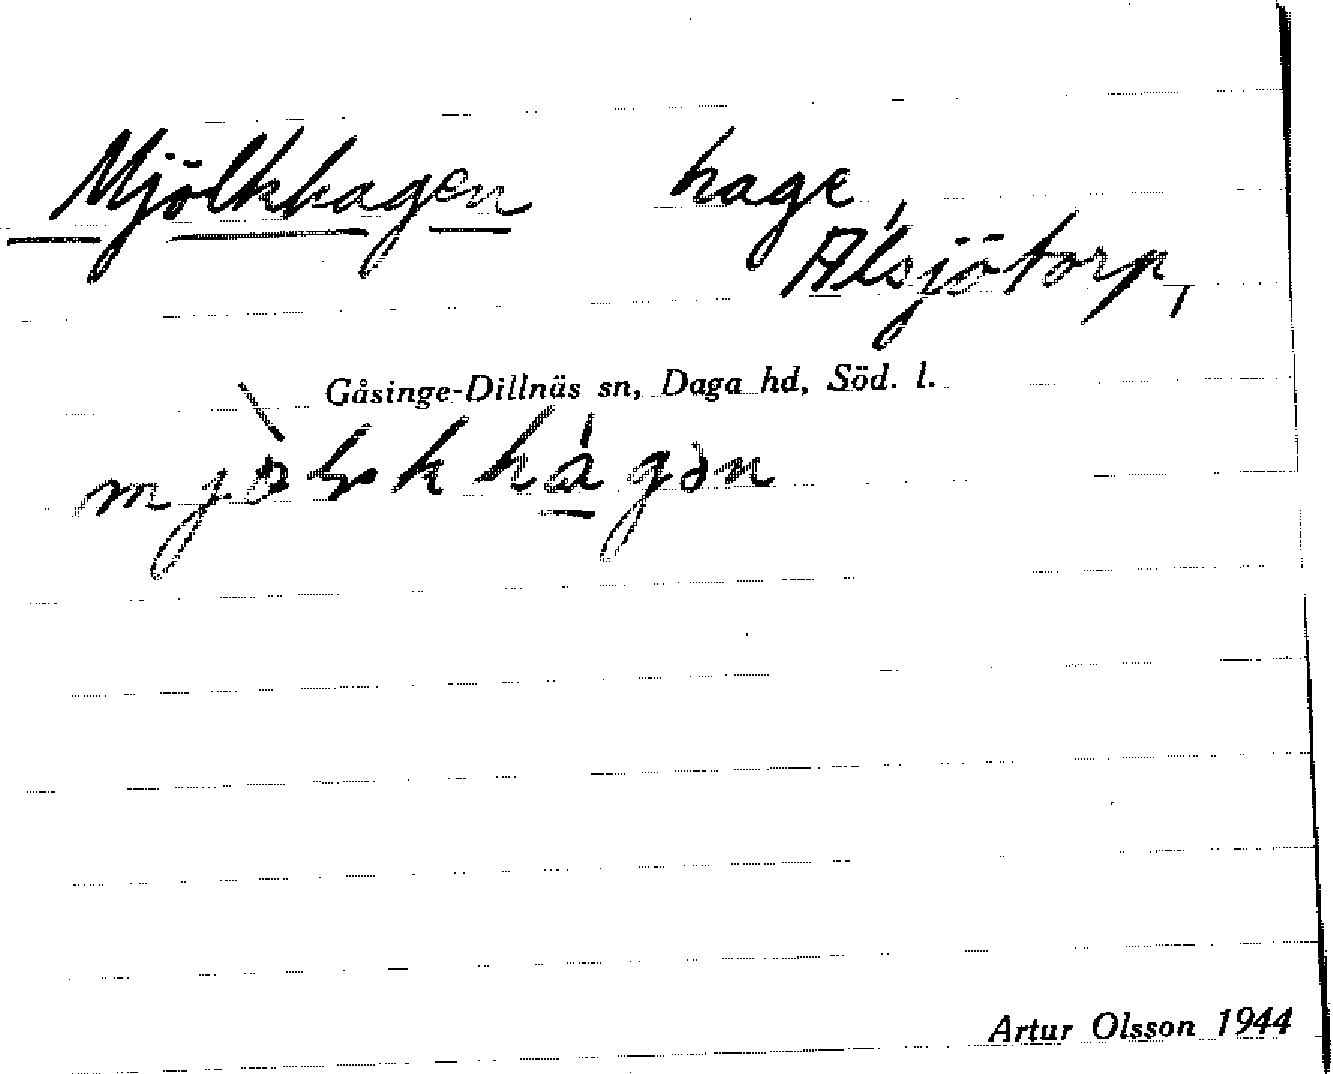 Mjölkhagen hage,
Älsjötorp,
Gåsinge-Dillnäs sn, Daga hd, Söd. l.
Artur Olsson 1944